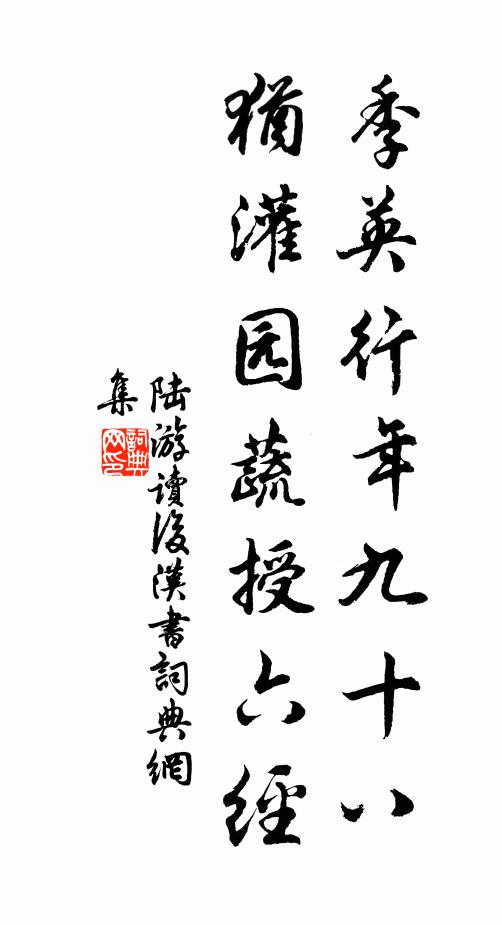 季英行年九十八
犹灌园蔬授六經
陆游讀後漢書詞典網
集
詞典
网印